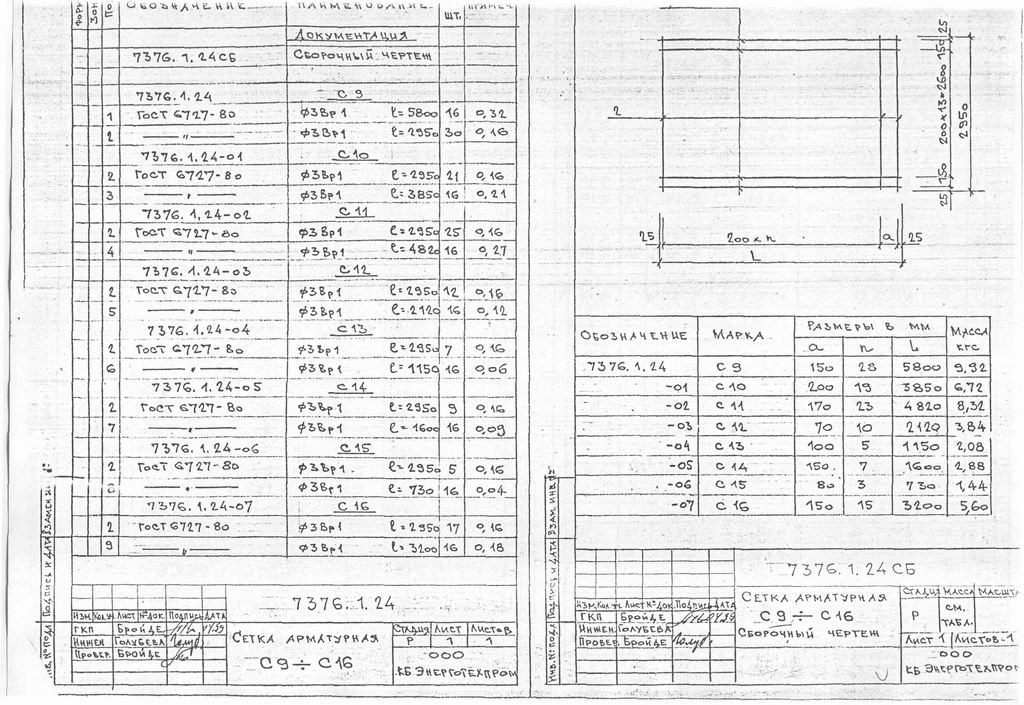 ОБОЗНАЧЕНИЕ НАИМЕНОВАНИЕ ШТ.
ДОКУМЕНТАЦИЯ
7376.1.24СБ СБОРОЧНЫЙ ЧЕРТЕЖ
7376.1.24 С 9
1 ГОСТ 6727-80 ф3Вр1 ℓ=5800 16 0,32
2 —"— ф3Вр1 ℓ=2950 30 0,16
7376.1.24-01 С 10
2 ГОСТ 6727-80 ф3Вр1 ℓ=2950 21 0,16
3 —"— ф3Вр1 ℓ=3850 16 0,21
7376.1.24-02 С 11
2 ГОСТ 6727-80 ф3Вр1 ℓ=2950 25 0,16
4 —"— ф3Вр1 ℓ=4820 16 0,27
7376.1.24-03 С 12
2 ГОСТ 6727-80 ф3Вр1 ℓ=2950 12 0,16
5 —"— ф3Вр1 ℓ=2120 16 0,12
7376.1.24-04 С 13
2 ГОСТ 6727-80 ф3Вр1 ℓ=2950 7 0,16
6 —"— ф3Вр1 ℓ=1150 16 0,06
7376.1.24-05 С 14
2 ГОСТ 6727-80 ф3Вр1 ℓ=2950 9 0,16
7 —"— ф3Вр1 ℓ=1600 16 0,09
7376.1.24-06 С 15
2 ГОСТ 6727-80 ф3Вр1 ℓ=2950 5 0,16
8 —"— ф3Вр1 ℓ=730 16 0,04
7376.1.24-07 С 16
2 ГОСТ 6727-80 ф3Вр1 ℓ=2950 17 0,16
9 —"— ф3Вр1 ℓ=3200 16 0,18
ПОДПИСЬ И ДАТА
7376.1.24
ИЗМ. КОЛ.УЧ ЛИСТ №ДОК. ПОДПИСЬ ДАТА
ГКП БРОЙДЕ
ИНЖЕН ГОЛУБЕВА
ПРОВЕР. БРОЙДЕ
СЕТКА АРМАТУРНАЯ
С 9 ÷ С 16
СТАДИЯ ЛИСТ ЛИСТОВ
Р 1 1
ООО
КБ ЭНЕРГОТЕХПРОМ
25
150
200х13=2600
150
25
2950
2
25 200хn a 25
L
ОБОЗНАЧЕНИЕ МАРКА РАЗМЕРЫ В ММ МАССА КГС
a n L
7376.1.24 С 9 150 28 5800 9,92
-01 С 10 200 19 3850 6,72
-02 С 11 170 23 4820 8,32
-03 С 12 70 10 2120 3,84
-04 С 13 100 5 1150 2,08
-05 С 14 150 7 1600 2,88
-06 С 15 80 3 730 1,44
-07 С 16 150 15 3200 5,60
ИНВ.№ПОДЛ ПОДПИСЬ И ДАТА ВЗАМ. ИНВ.№
7376.1.24СБ
ИЗМ. КОЛ.УЧ ЛИСТ №ДОК. ПОДПИСЬ ДАТА
ГКП БРОЙДЕ
ИНЖЕН. ГОЛУБЕВА
ПРОВЕР. БРОЙДЕ
СЕТКА АРМАТУРНАЯ
С 9 ÷ С 16
СБОРОЧНЫЙ ЧЕРТЕЖ
СТАДИЯ МАССА МАСШТА
Р СМ. ТАБЛ.
ЛИСТ 1 ЛИСТОВ-1
ООО
КБ ЭНЕРГОТЕХП